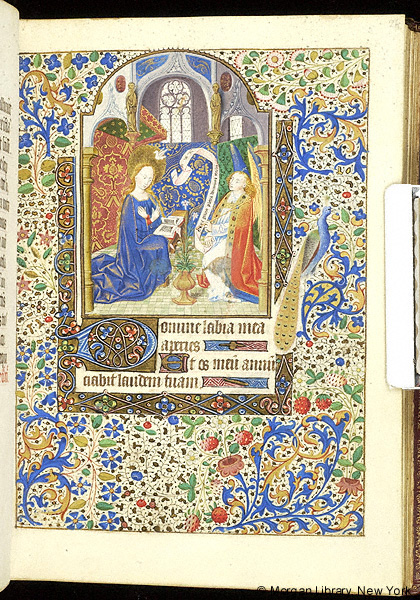 Domine labia mea
aperies
Et os meū annūc
ciabit laudem tuam
© Morgan Library, New York